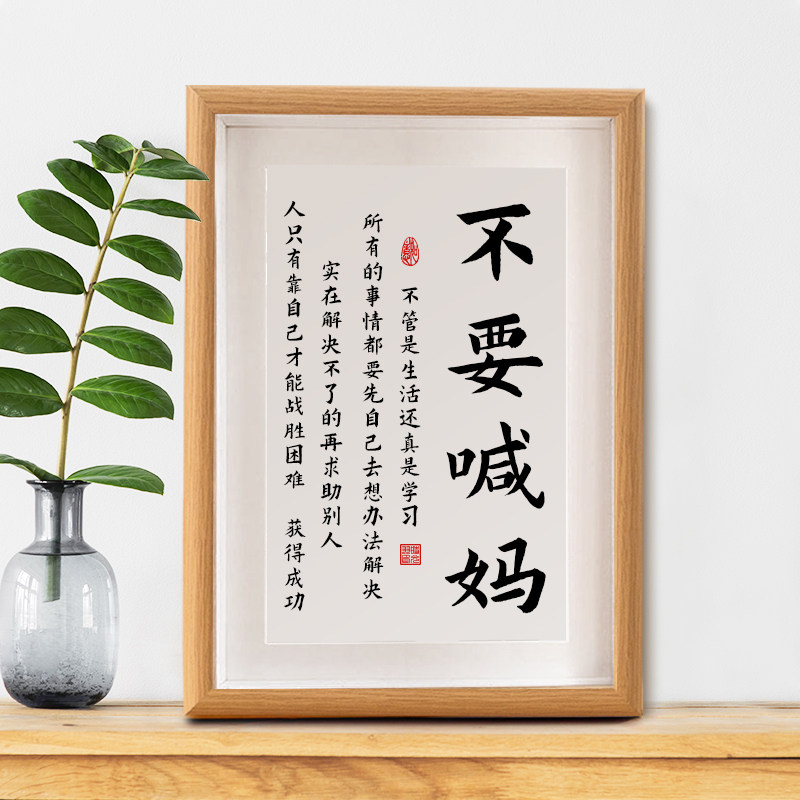 不要喊妈
不管是生活还真是学习
所有的事情都要先自己去想办法解决
实在解决不了的再求助别人
人只有靠自己才能战胜困难 获得成功